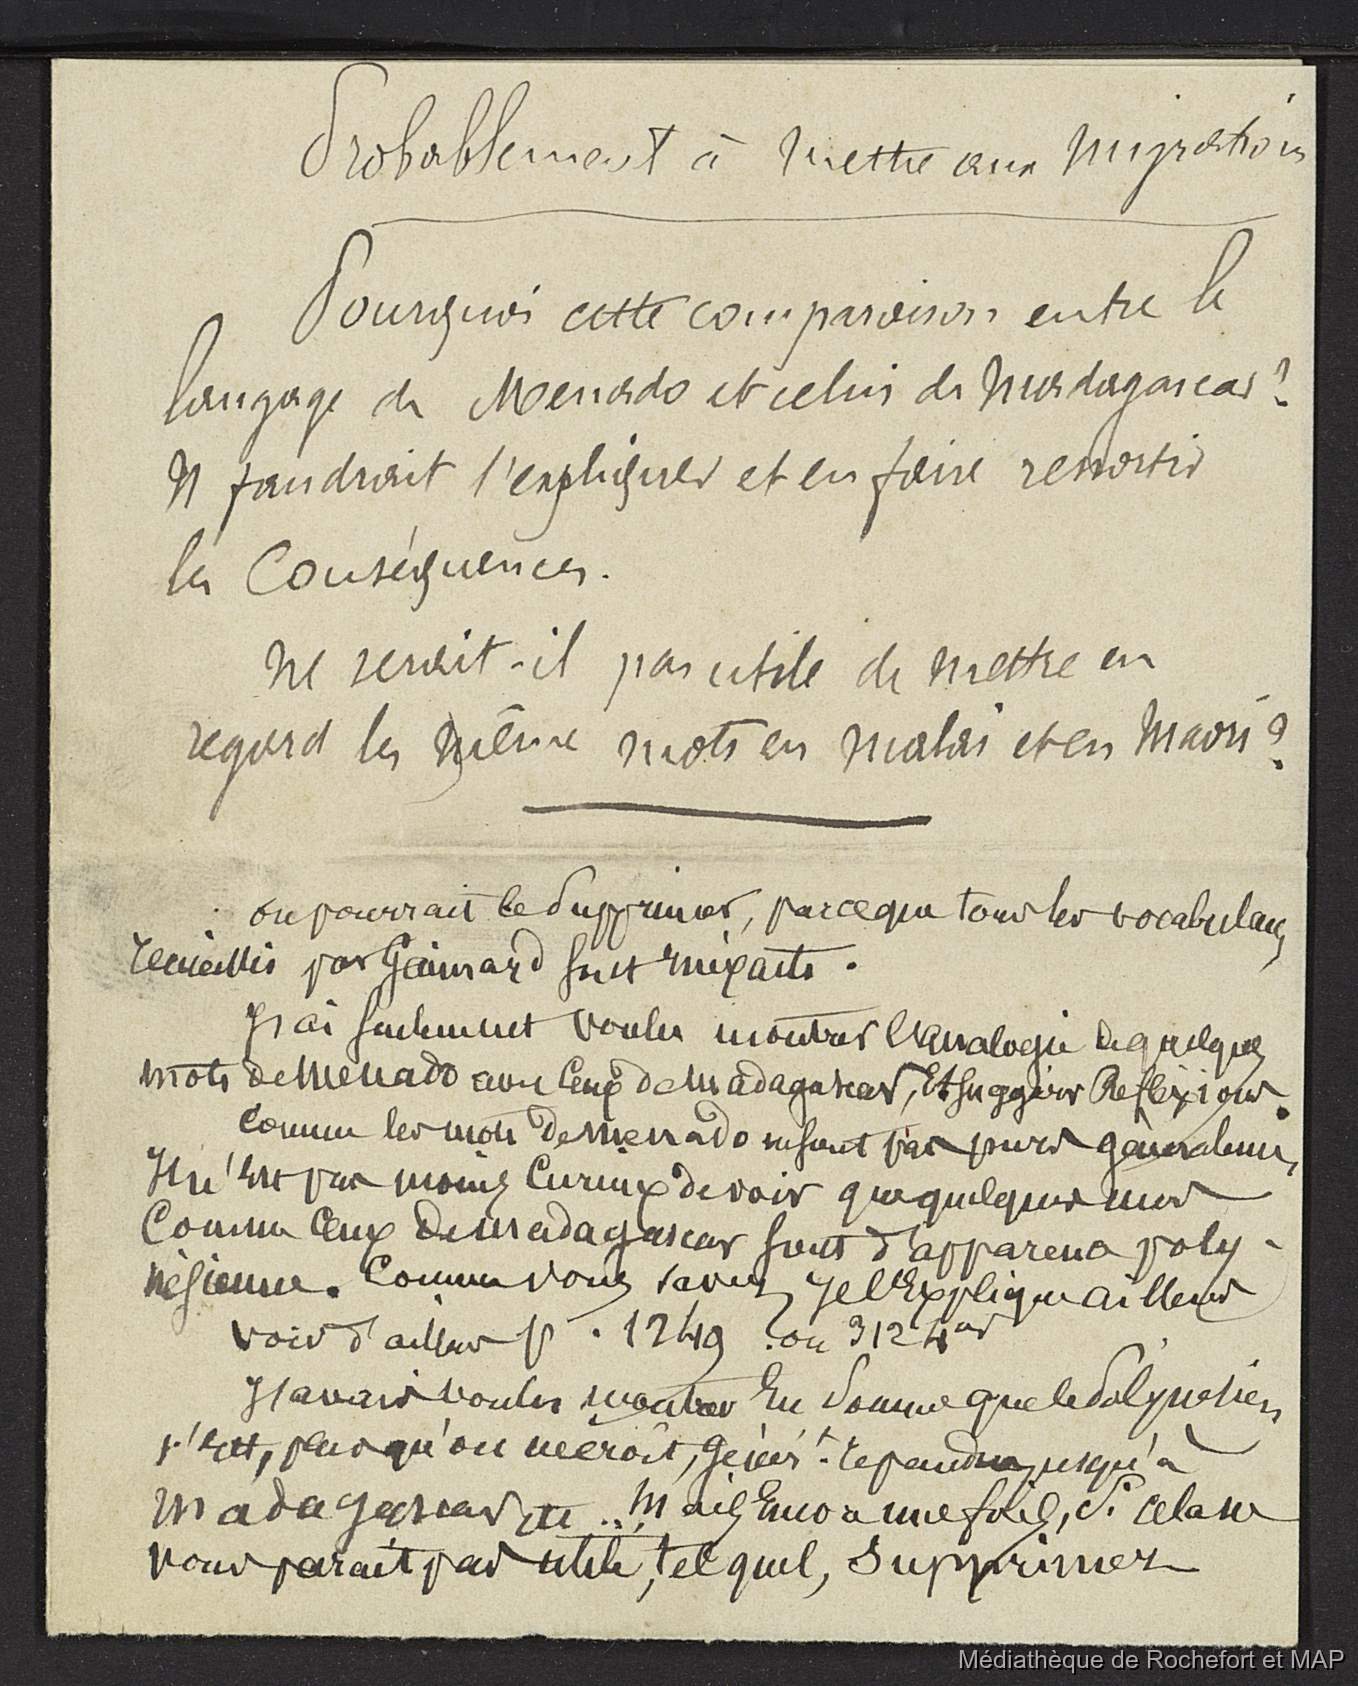 Probablement à mettre aux Migrations
Pourquoi cette comparaison entre le
langage de Menado et celui de Madagascar ?
Il faudrait l'expliquer et en faire ressortir
les Conséquences.
Ne serait-il pas utile de mettre en
regard les même mots en Malais et en Maori ?
on pourrait le Supprimer, parceque tous les vocabulaires
recueillis par Gaimard sont inexacts.
J'ai seulement voulu montrer l'analogie de quelques
mots de Menado avec ceux de Madagascar, et suggérer Réflexions.
Comme les mots de Menado ne sont pas purs
Il n'est pas moins curieux de voir que quelques uns
Comme ceux de Madagascar sont d'apparence poly-
nésienne. Comme vous savez, je l'explique ailleurs
voir d'ailleurs p. 1249 . ou 312
J'avais voulu montrer En Somme que le Polynésien
s'est, plus qu'on ne croit, répandu jusqu'à
Madagascar etc .. Mais Encore une fois, Si cela ne
vous parait pas utile, tel quel, Supprimer
Médiathèque de Rochefort et MAP